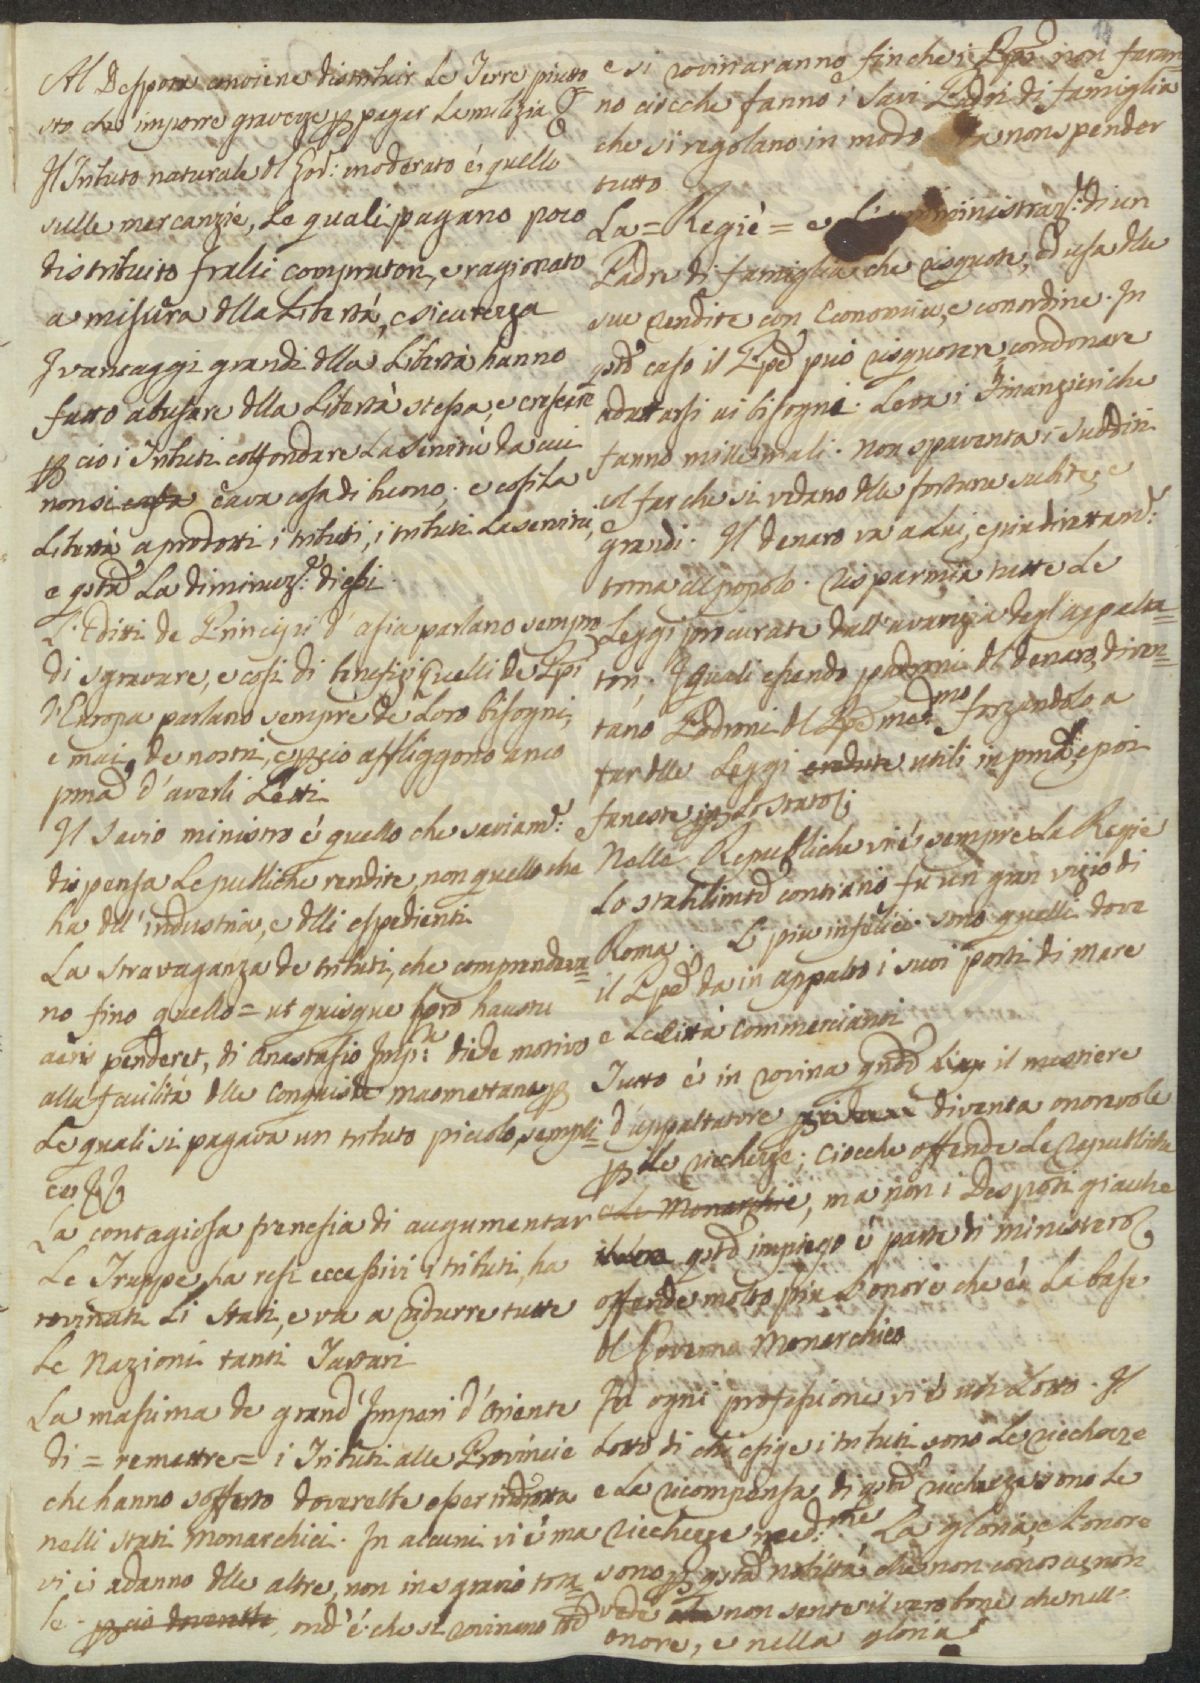 Al Despota conviene distribuir le Terre piutto
sto che imporre gravezze p pagar le milizie
Il Tributo naturale dl Gov: moderato è quello
sulle mercanzie, le quali pagano poco
distribuito fralli compratori, e ragionato
a misura dlla Libertà, e sicurezza
I vantaggi grandi dlla Libertà hanno
fatto abusare dlla Libertà stessa, e crescere
p ciò i Tributi coll'fondare la servitù da cui
non si cava cosa di buono. e così la
Libertà a prodotti i tributi, i tributi la servitù,
e qsta la diminuz: di essi.
L'Editti de Principi d'Asia parlano sempre
di sgravare, e così di benefizi; Quelli de Ppi
d'Europa parlano sempre de Loro bisogni,
e mai de nostri, e p ciò affliggono anco
pma d'averli Letti
Il savio ministro è quello che saviam:
dispensa le publiche rendite, non quello che
ha dll'industria, e dlli espedienti
La stravaganza de tributi, che comprendeva=
no fino quello = ut quisque pro haustu
aeris penderet, di Anastasio Imp: diede motivo
alla facilità dlle conquiste maomettane p
le quali si pagava un tributo piccolo, sempli=
ce
La contagiosa frenesia di augumentar
le Truppe, ha resi eccessivi i tributi, ha
rovinati li Stati, e va a ridurre tutte
le Nazioni tanti Tartari
La massima de grand'Imperi d'Oriente
di = remettre = i Tributi alle Provincie
che hanno sofferto dovrebbe esser
nelli stati Monarchici. In alcuni vi è ma
vi è a danno dlle altre, non in sgravio tota
le. p ciò dovrebbe, ond'è che si rovinano
14
e si rovinaranno finche i Ppi non faran=
no ciocche fanno i Savi Padri di famiglia
che si regolano in modo non spender
tutto
La = Regiè = e l'amministraz: di un
Padre di famiglia che risquote, ed usa dlle
sue rendite con Economia, e con ordine. In
qsto caso il Ppe può risquotere, condonare
adattarsi ai bisogni. Leva i Finanzieri che
fanno mille mali. Non spaventa i sudditi
col far che si vedano dlle fortune subite, e
grandi. Il denaro va a Lui, e più direttam:
torna al popolo. risparmia tutte le
Leggi procurate dall'avarizia degl'appalta=
tori. I quali essendo padroni dl denaro, diven=
tano Padroni dl Ppe medmo forzandolo a
far dlle Leggi credute utili in pma, e poi
funeste p Lo Stato
Nelle Republiche vi è sempre La Regie
Lo stabilimto contrario fu un gran vizio di
Roma. Li piu infelici sono quelli dove
il Ppe da in appalto i suoi porti di mare
e le Città commercianti
Tutto è in rovina qndo il mestiere
d'appaltatore diventa onorevole
p le ricchezze; Ciocche offende le republiche
e le Monarchie, ma non i Despoti giache
qsto impiego è parte di ministero
offende molto più l'onore che è la base
dl Governo Monarchico
In ogni professione vi è un Lotto. Il
Lotto di chi esige i tributi sono le ricchezze
e la ricompensa di qste ricchezze sono le
ricchezze medme. La gloria, e l'onore
sono p qsta nobiltà che non conosce, non
vede non sente il vero bene che nell'
onore, e nella gloria